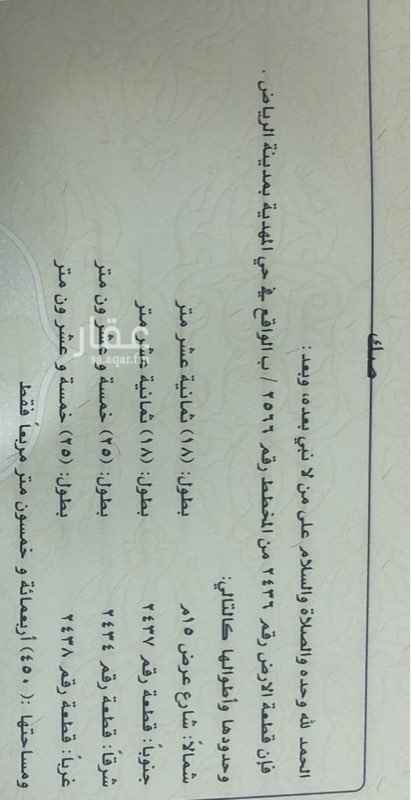 صك
الحمد لله وحده والصلاة والسلام على من لا نبي بعده، وبعد:
فإن قطعة الارض رقم ٢٤٣٦ من المخطط رقم ٢٥٦٦ / ب الواقع في حي المهدية بمدينة الرياض .
وحدودها وأطوالها كالتالي:
شمالاً: شارع عرض ١٥م بطول: (١٨) ثمانية عشر متر
جنوباً: قطعة رقم ٢٤٣٧ بطول: (١٨) ثمانية عشر متر
شرقاً: قطعة رقم ٢٤٣٤ بطول: (٢٥) خمسة و عشر ون متر
غرباً: قطعة رقم ٢٤٣٨ بطول: (٢٥) خمسة و عشر ون متر
ومساحتها :( ٤٥٠) أربعمائة و خمسون متر مربعاً فقط
عقار
sa.aqar.fm